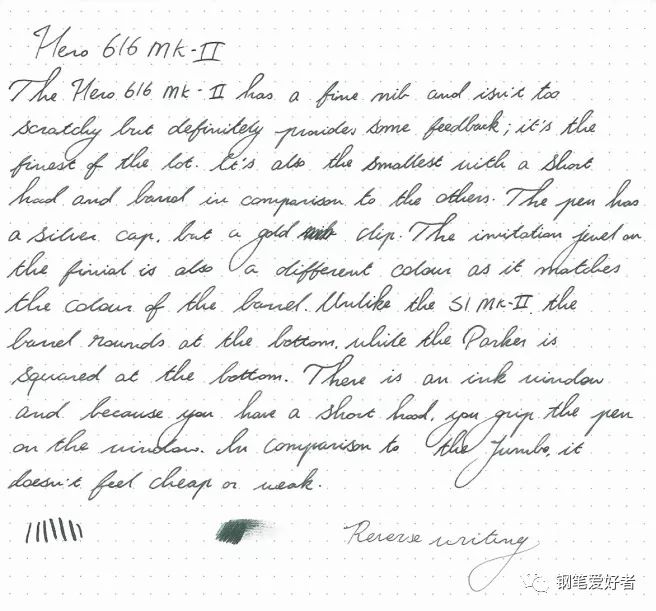 Hero 616 MK-II
The Hero 616 MK-II has a fine nib and isn't too
scratchy but definitely provides some feedback; it's the
finest of the lot. It's also the smallest with a short
hood and barrel in comparison to the others. The pen has
a silver cap, but a gold clip. The imitation jewel on
the finial is also a different colour as it matches
the colour of the barrel. Unlike the 51 MK-II, the
barrel rounds at the bottom, while the Parker is
squared at the bottom. There is an ink window
and because you have a short hood, you grip the pen
on the window. In comparison to the Jumbo, it
doesn't feel cheap or weak.
Reverse writing
钢笔爱好者